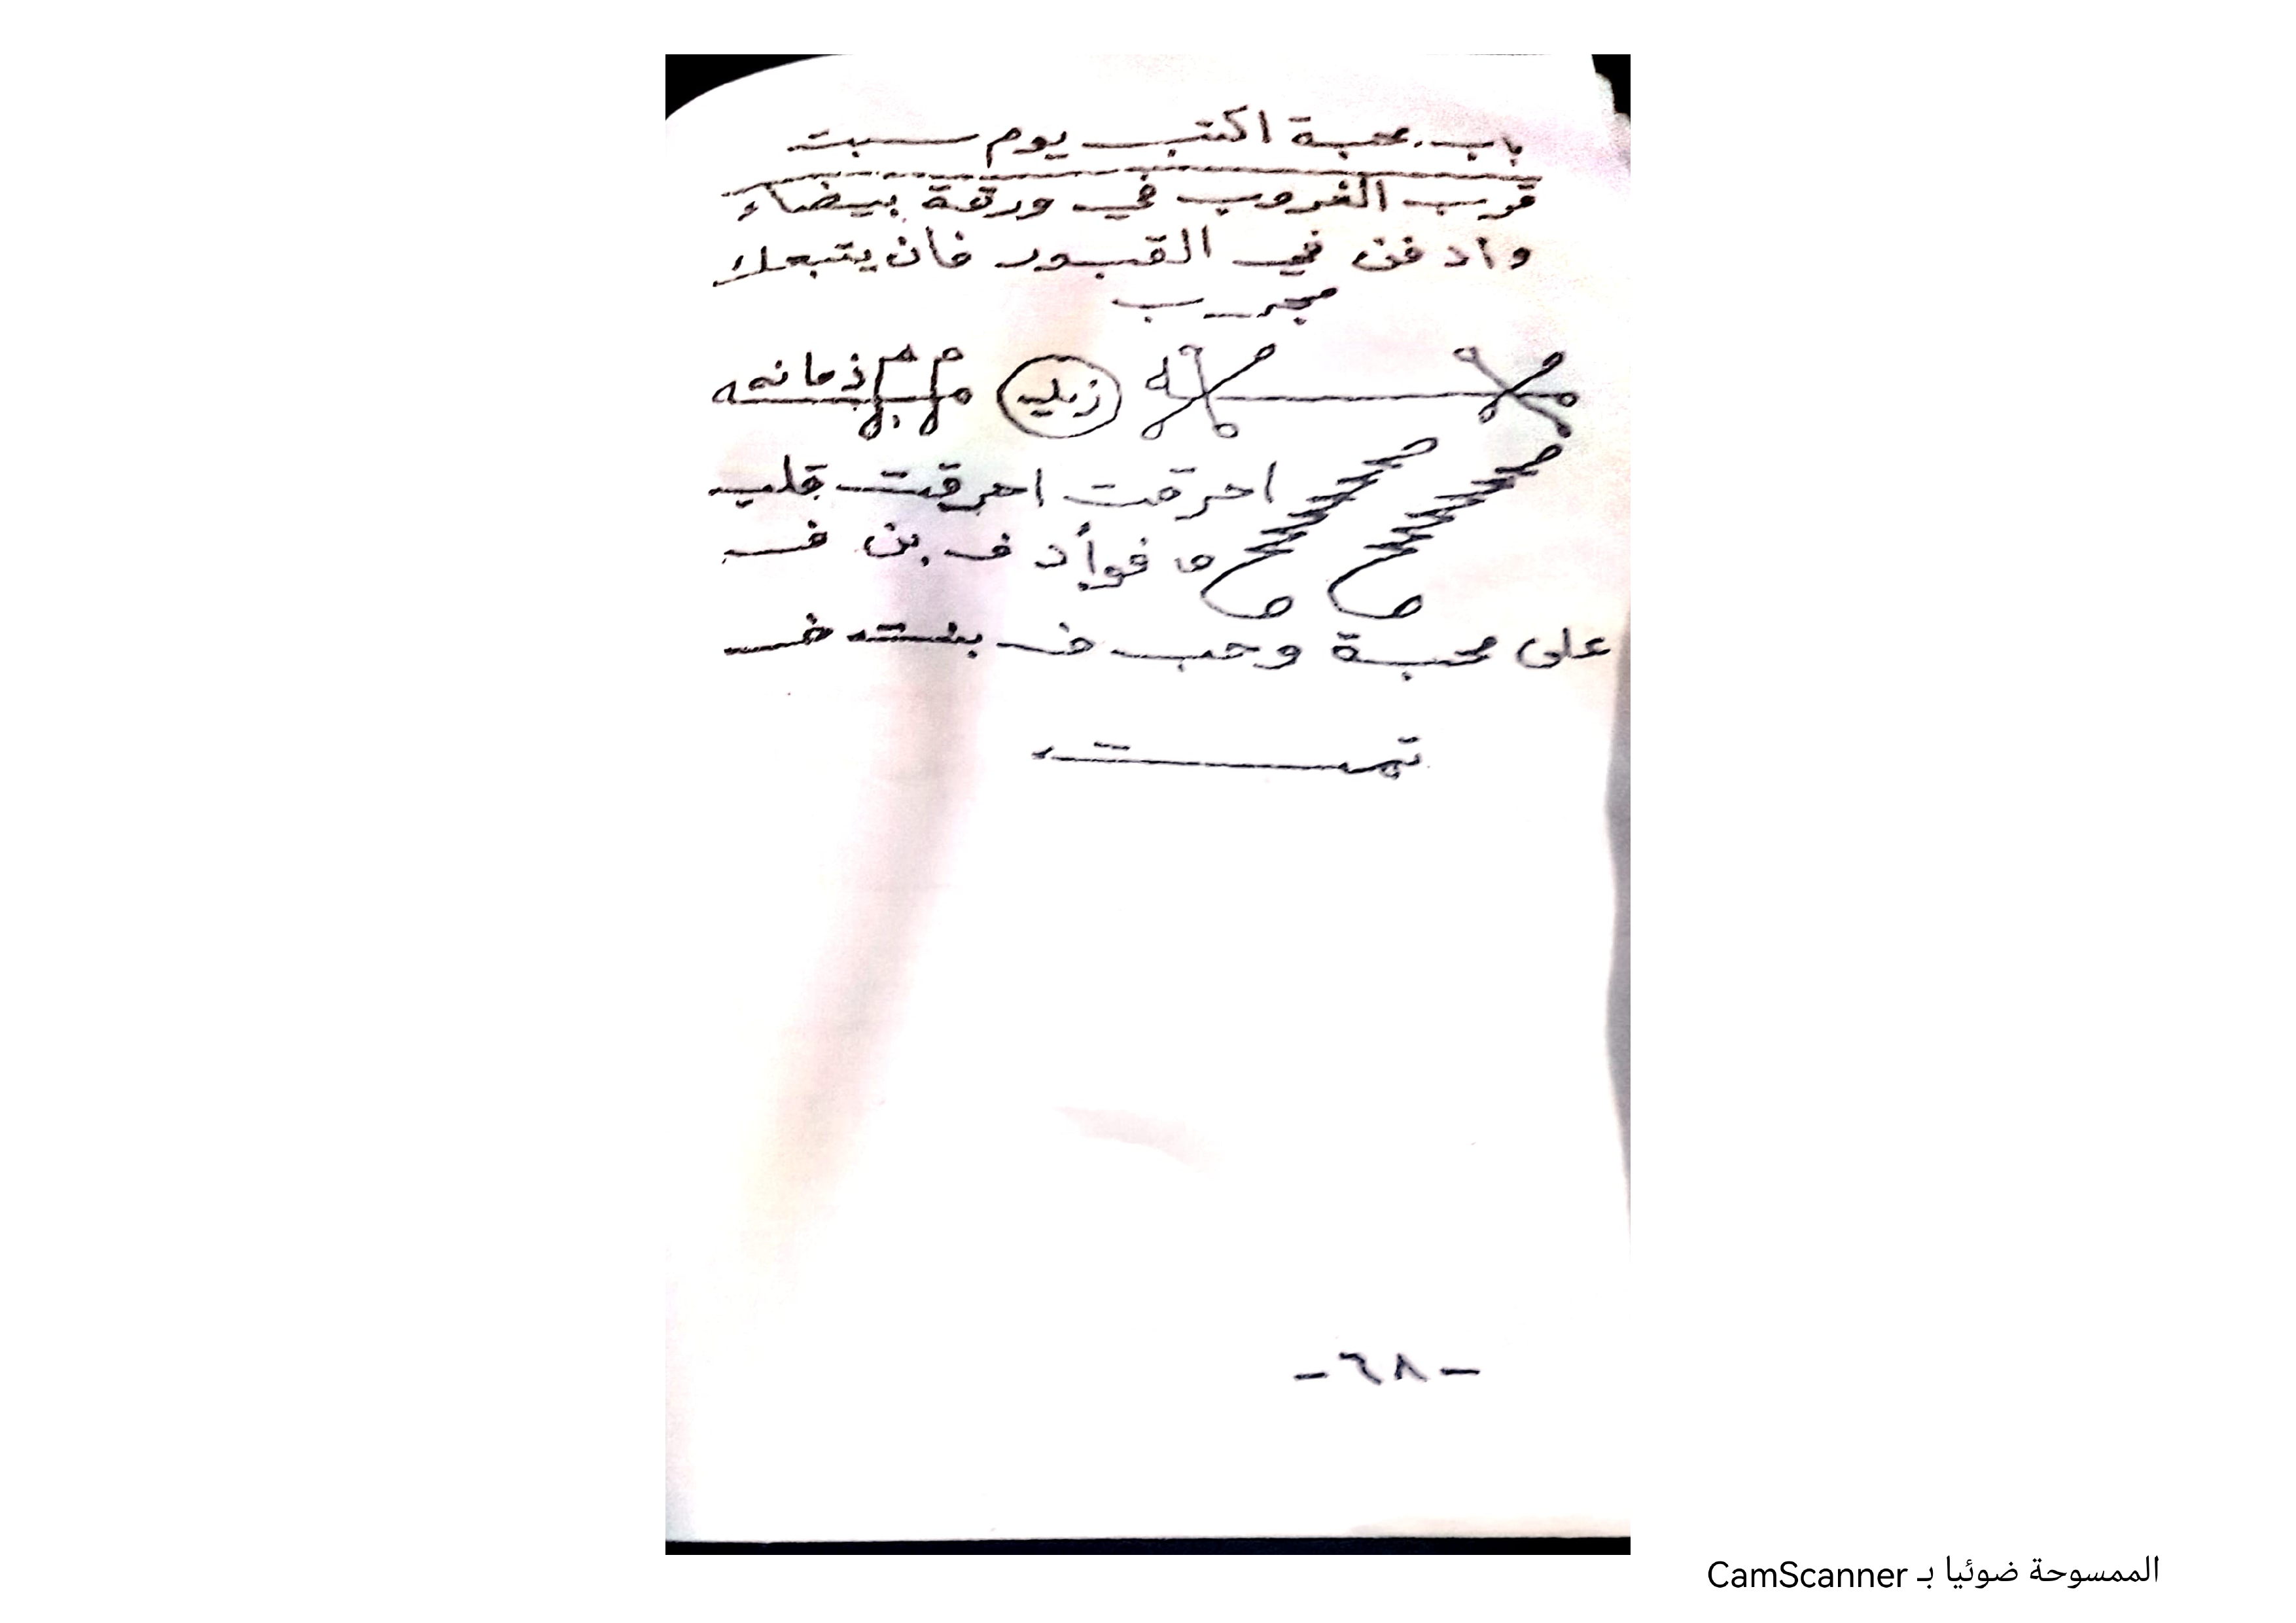 باب محبة اكتب يوم سبت
قرب الغروب في ورقة بيضاء
وادفن في القبور فان يتبعك
مجرب
احرقت احرقت قلب
فوأد ف بن ف
على محبة وحب ف بنت ف
تمت
-٦٨-
الممسوحة ضوئيا بـ CamScanner